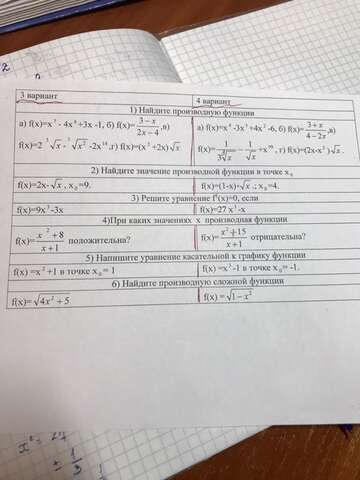 3 вариант
4 вариант
1) Найдите производную функции
а) f(x)=x⁵ - 4x⁴+3x -1, б) f(x)=(3-x)/(2x-4),в)
f(x)=2 √x - √x² -2x¹⁴,г) f(x)=(x²+2x)√x
а) f(x)=x⁴ -3x³+4x² -6, б) f(x)=(3+x)/(4-2x),в)
f(x)=1/(3√x) - 1/√x +x⁹⁹, г) f(x)=(2x-x²)√x.
2) Найдите значение производной функции в точке x₀
f(x)=2x-√x, x₀=9.
f(x)=(1-x)·√x.; x₀=4.
3) Решите уравнение f'(x)=0, если
f(x)=9x³-3x
f(x)=27x³-x
4)При каких значениях x производная функции
f(x)=(x²+8)/(x+1) положительна?
f(x)=(x²+15)/(x+1) отрицательна?
5) Напишите уравнение касательной к графику функции
f(x) =x²+1 в точке x₀= 1
f(x) =x³-1 в точке x₀= -1.
6) Найдите производную сложной функции
f(x)= √(4x²+5)
f(x) = √(1-x²)
x² = 27
± 1/3